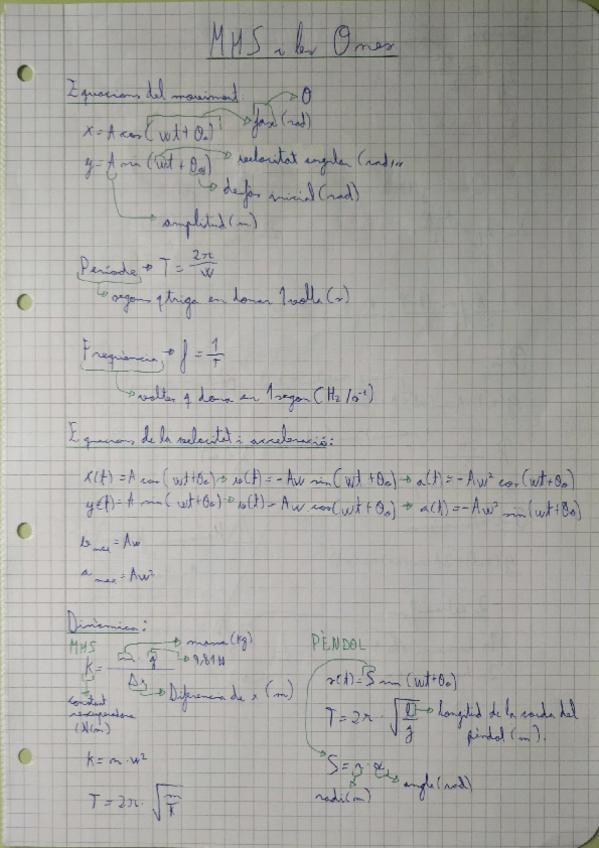 MHS i les Ones
Equacions del moviment:
θ
x = A cos (wt + θ₀) fase (rad)
y = A sin (wt + θ₀) velocitat angular (rad/
desfàs inicial (rad)
amplitud (m)
Període → T = 2π/w
segons q triga en donar 1 volta (s)
Freqüència → f = 1/T
voltes q dona en 1 segon (Hz/s⁻¹)
Equacions de la velocitat i acceleració:
x(t) = A cos (wt + θ₀) → v(t) = -Aw sin (wt + θ₀) → a(t) = -Aw² cos (wt + θ₀)
y(t) = A sin (wt + θ₀) → v(t) = Aw cos (wt + θ₀) → a(t) = -Aw² sin (wt + θ₀)
v max = Aw
a max = Aw²
Dinàmica:
MHS
massa (kg)
K = m · g / Δx
9,81
Diferencia de x (m)
constant
recuperadora
(N/m)
K = m · w²
T = 2π · √(m/K)
PÈNDOL
x(t) = S sin (wt + θ₀)
T = 2π · √(l/g) → Longitud de la corda del
pèndol (m).
S = r · α
angle (rad)
radi (m)